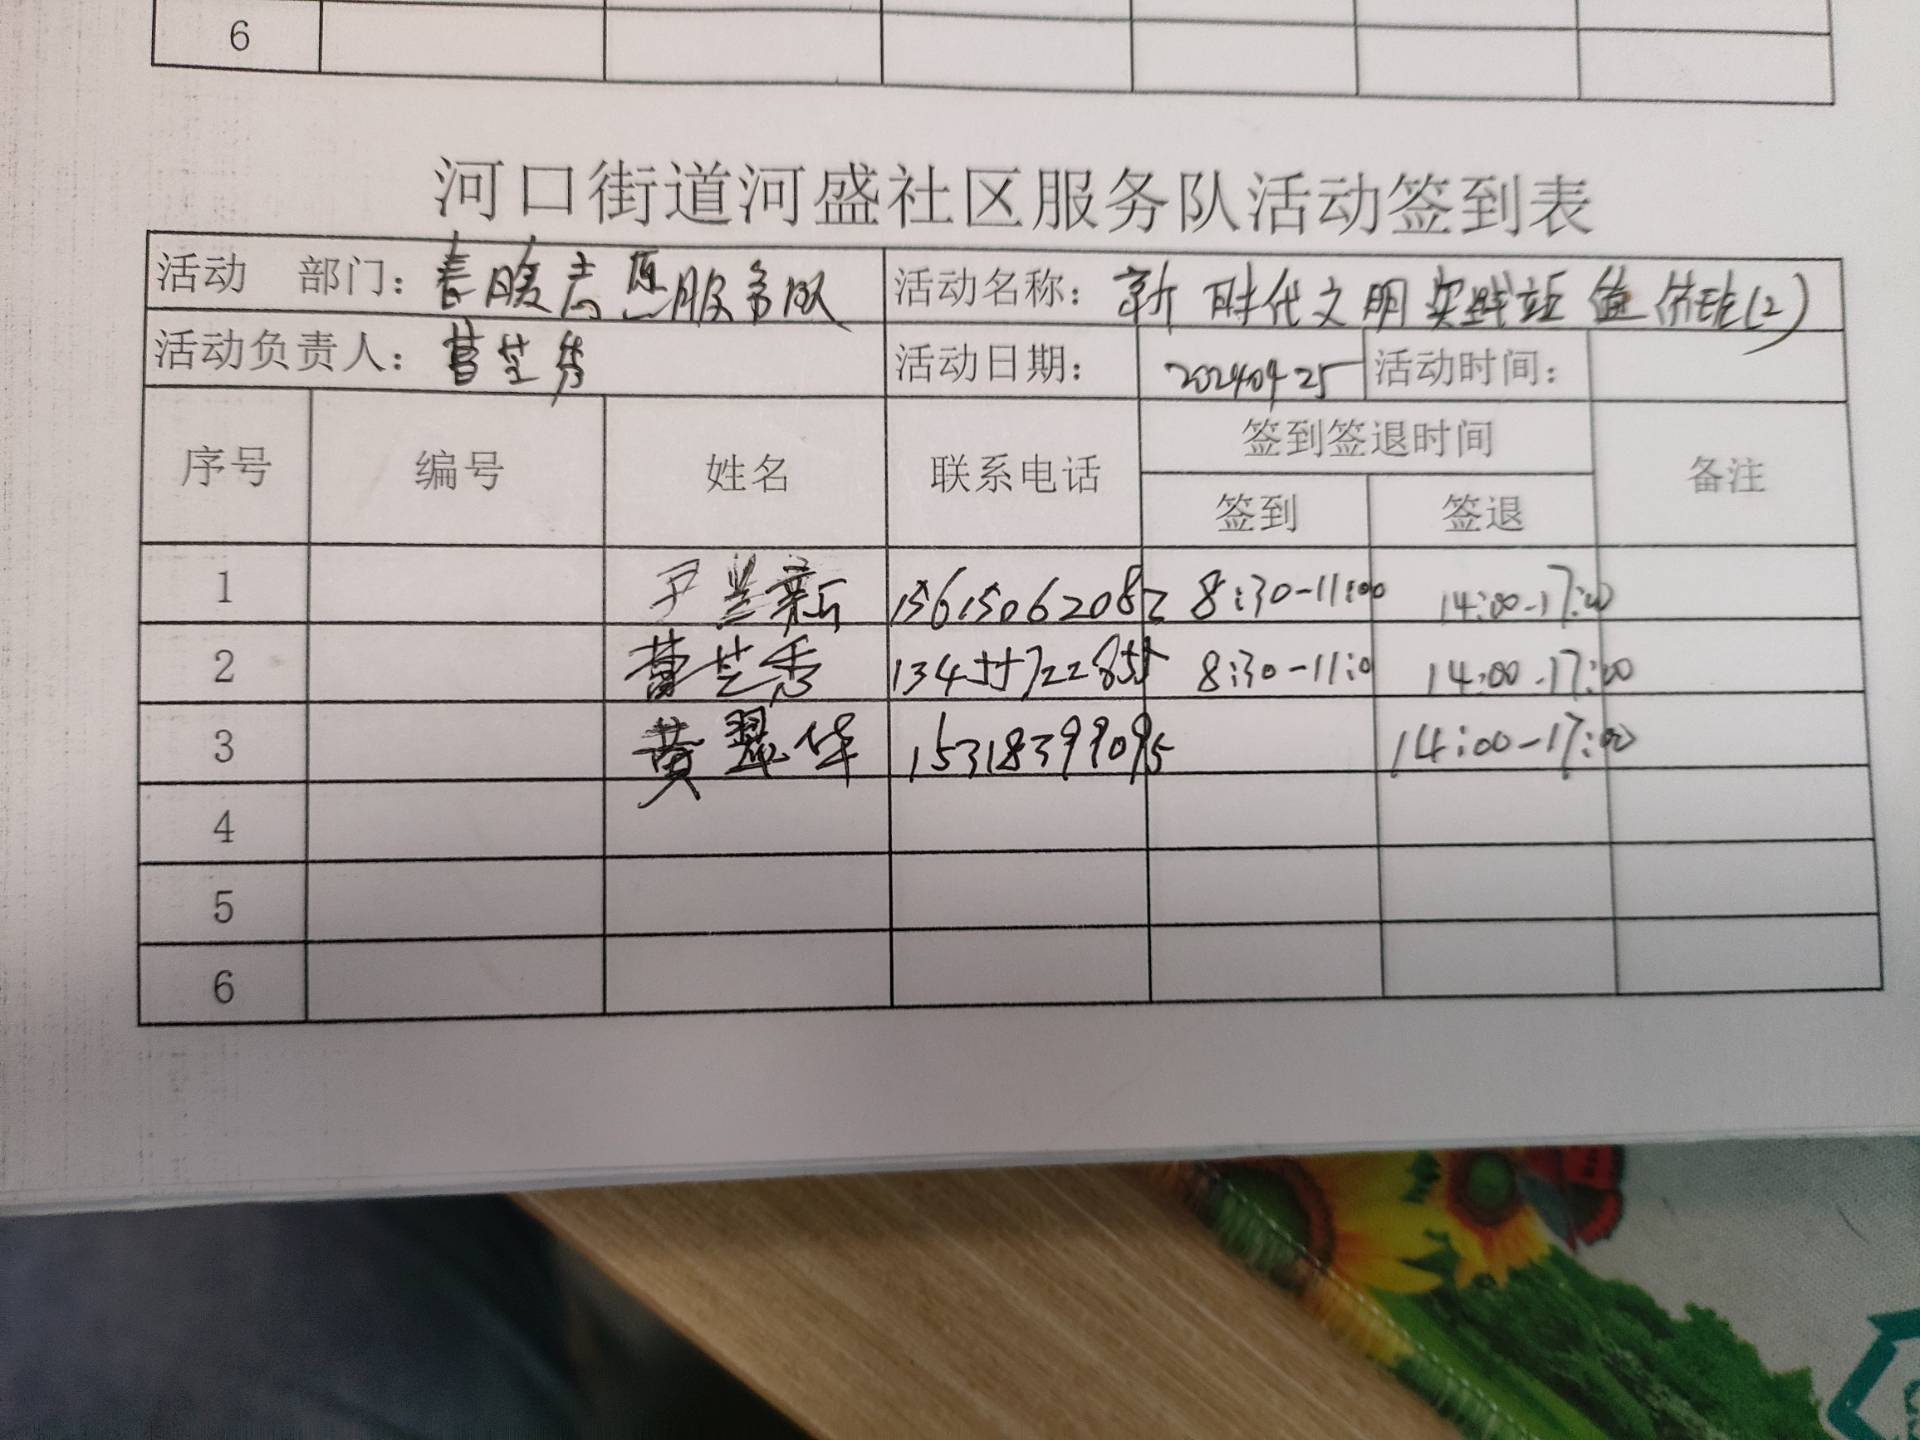 6
河口街道河盛社区服务队活动签到表
活动 部门：春暖志愿服务队 活动名称：新时代文明实践站值班(2)
活动负责人：芝秀 活动日期：20240425 活动时间：
序号 编号 姓名 联系电话 签到签退时间 备注
签到 签退
1 尹兰新 15615062082 8:30-11:00 14:00-17:00
2 芝秀 8:30-11:0 14:00-17:00
3 黄翠华 15318399095 14:00-17:00
4
5
6